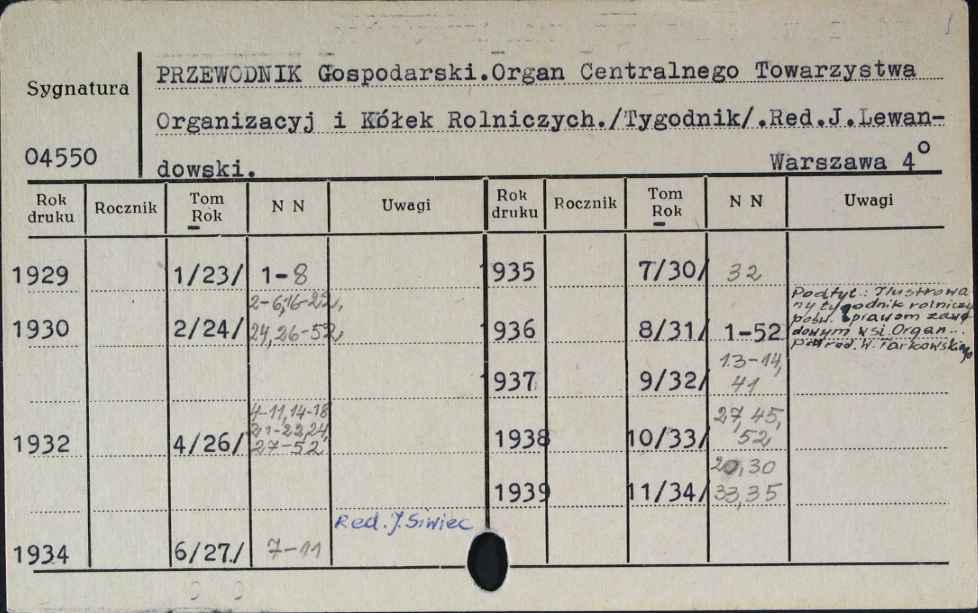 PRZEWODNIK Gospodarski.Organ Centralnego Towarzystwa
Sygnatura
Organizacyj i Kółek Rolniczych./Tygodnik/.Red.J.Lewan-
04550
dowski. Warszawa 4°
Rok druku Rocznik Tom Rok N N Uwagi Rok druku Rocznik Tom Rok N N Uwagi
1929 1/23/ 1-8 1935 7/30/ 32
1930 2/24/ 2-6,16-22, 24,26-52 1936 8/31/ 1-52 Podtyt.: Ilustrowa
ny tygodnik rolniczy
pośw. sprawom zawo
dowym wsi. Organ...
pod red. W. Tarkowskiego
1937 9/32/ 13-14, 41
1932 4/26/ 4-11,14-18 21-22,24, 27-52 1938 10/33/ 27,45, 52
1939 11/34/ 20,30 33,35
Red. J. Siwiec
1934 6/27/ 7-11